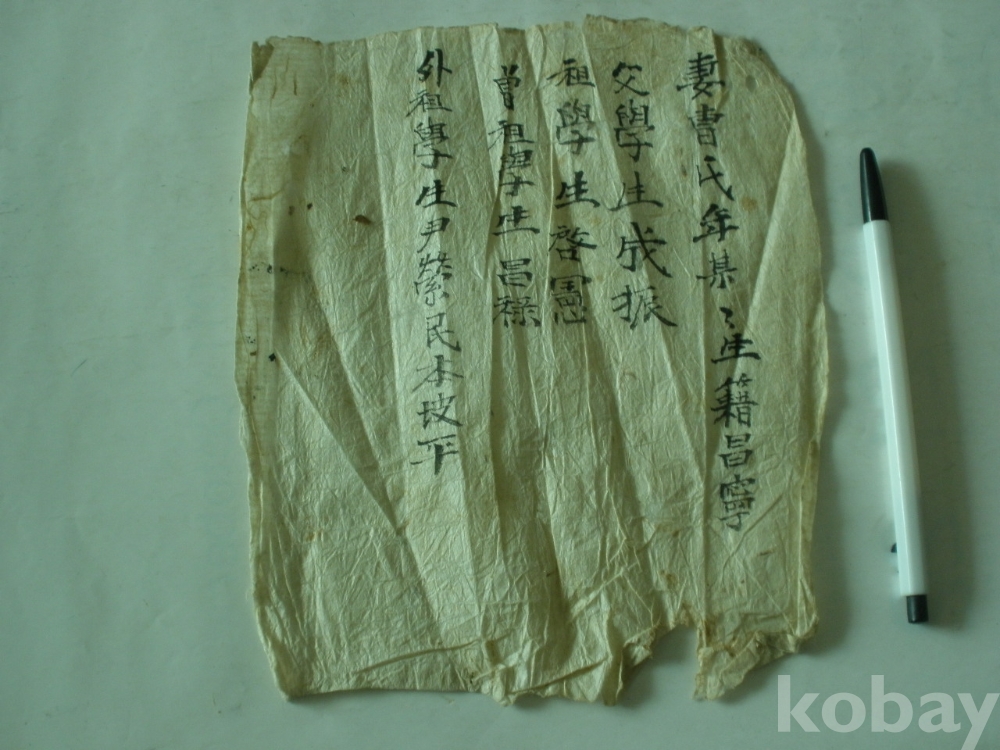 妻曺氏年某〻生籍昌寧
父學生成振
祖學生啓憲
曾祖學生昌祿
外祖學生尹縈民本坡平
kobay